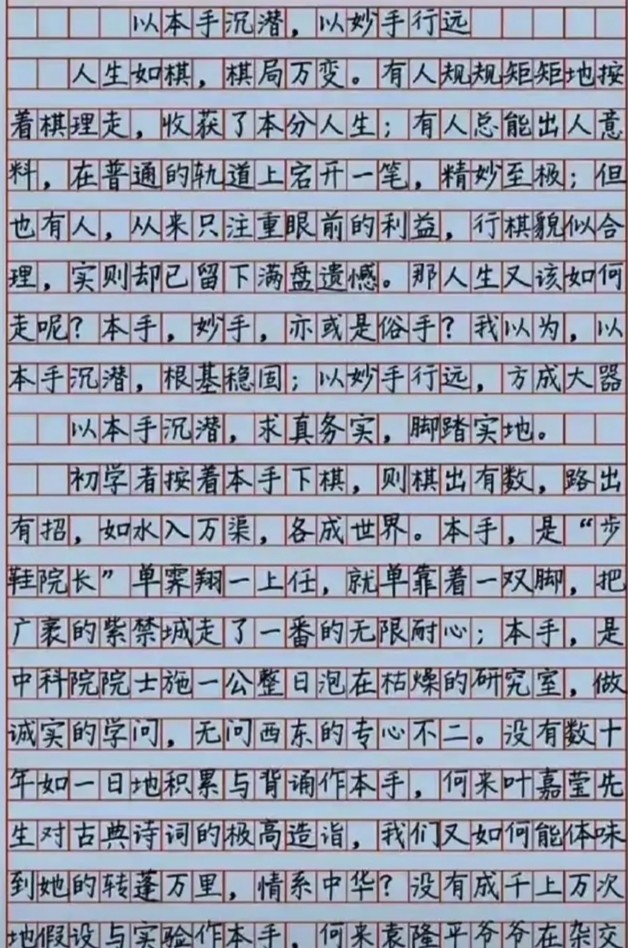 以本手沉潜，以妙手行远
人生如棋，棋局万变。有人规规矩矩地按
着棋理走，收获了本分人生；有人总能出人意
料，在普通的轨道上宕开一笔，精妙至极；但
也有人，从来只注重眼前的利益，行棋貌似合
理，实则却已留下满盘遗憾。那人生又该如何
走呢？本手，妙手，亦或是俗手？我以为，以
本手沉潜，根基稳固；以妙手行远，方成大器
以本手沉潜，求真务实，脚踏实地。
初学者按着本手下棋，则棋出有数，路出
有招，如水入万渠，各成世界。本手，是“步
鞋院长”单霁翔一上任，就单靠着一双脚，把
广袤的紫禁城走了一番的无限耐心；本手，是
中科院院士施一公整日泡在枯燥的研究室，做
诚实的学问，无问西东的专心不二。没有数十
年如一日地积累与背诵作本手，何来叶嘉莹先
生对古典诗词的极高造诣，我们又如何能体味
到她的转蓬万里，情系中华？没有成千上万次
地假设与实验作本手，何来袁隆平爷爷在杂交